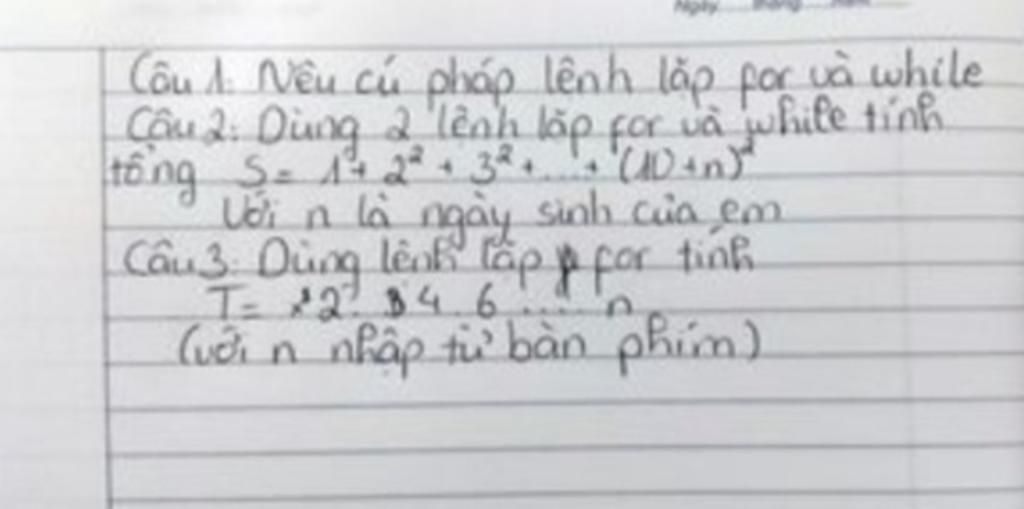 Ngày tháng năm
Câu 1: Nêu cú pháp lệnh lặp for và while
Câu 2: Dùng 2 lệnh lặp for và while tính
tổng S = 1² + 2² + 3² + ... + (10+n)²
Với n là ngày sinh của em
Câu 3: Dùng lệnh lặp for tính
T = 2 . 4 . 6 .... n
(với n nhập từ bàn phím)